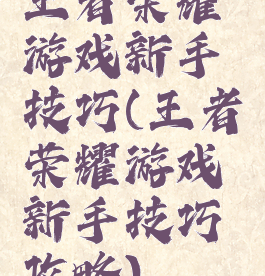 王者荣耀
游戏新手
技巧(王者
荣耀游戏
新手技巧
攻略)